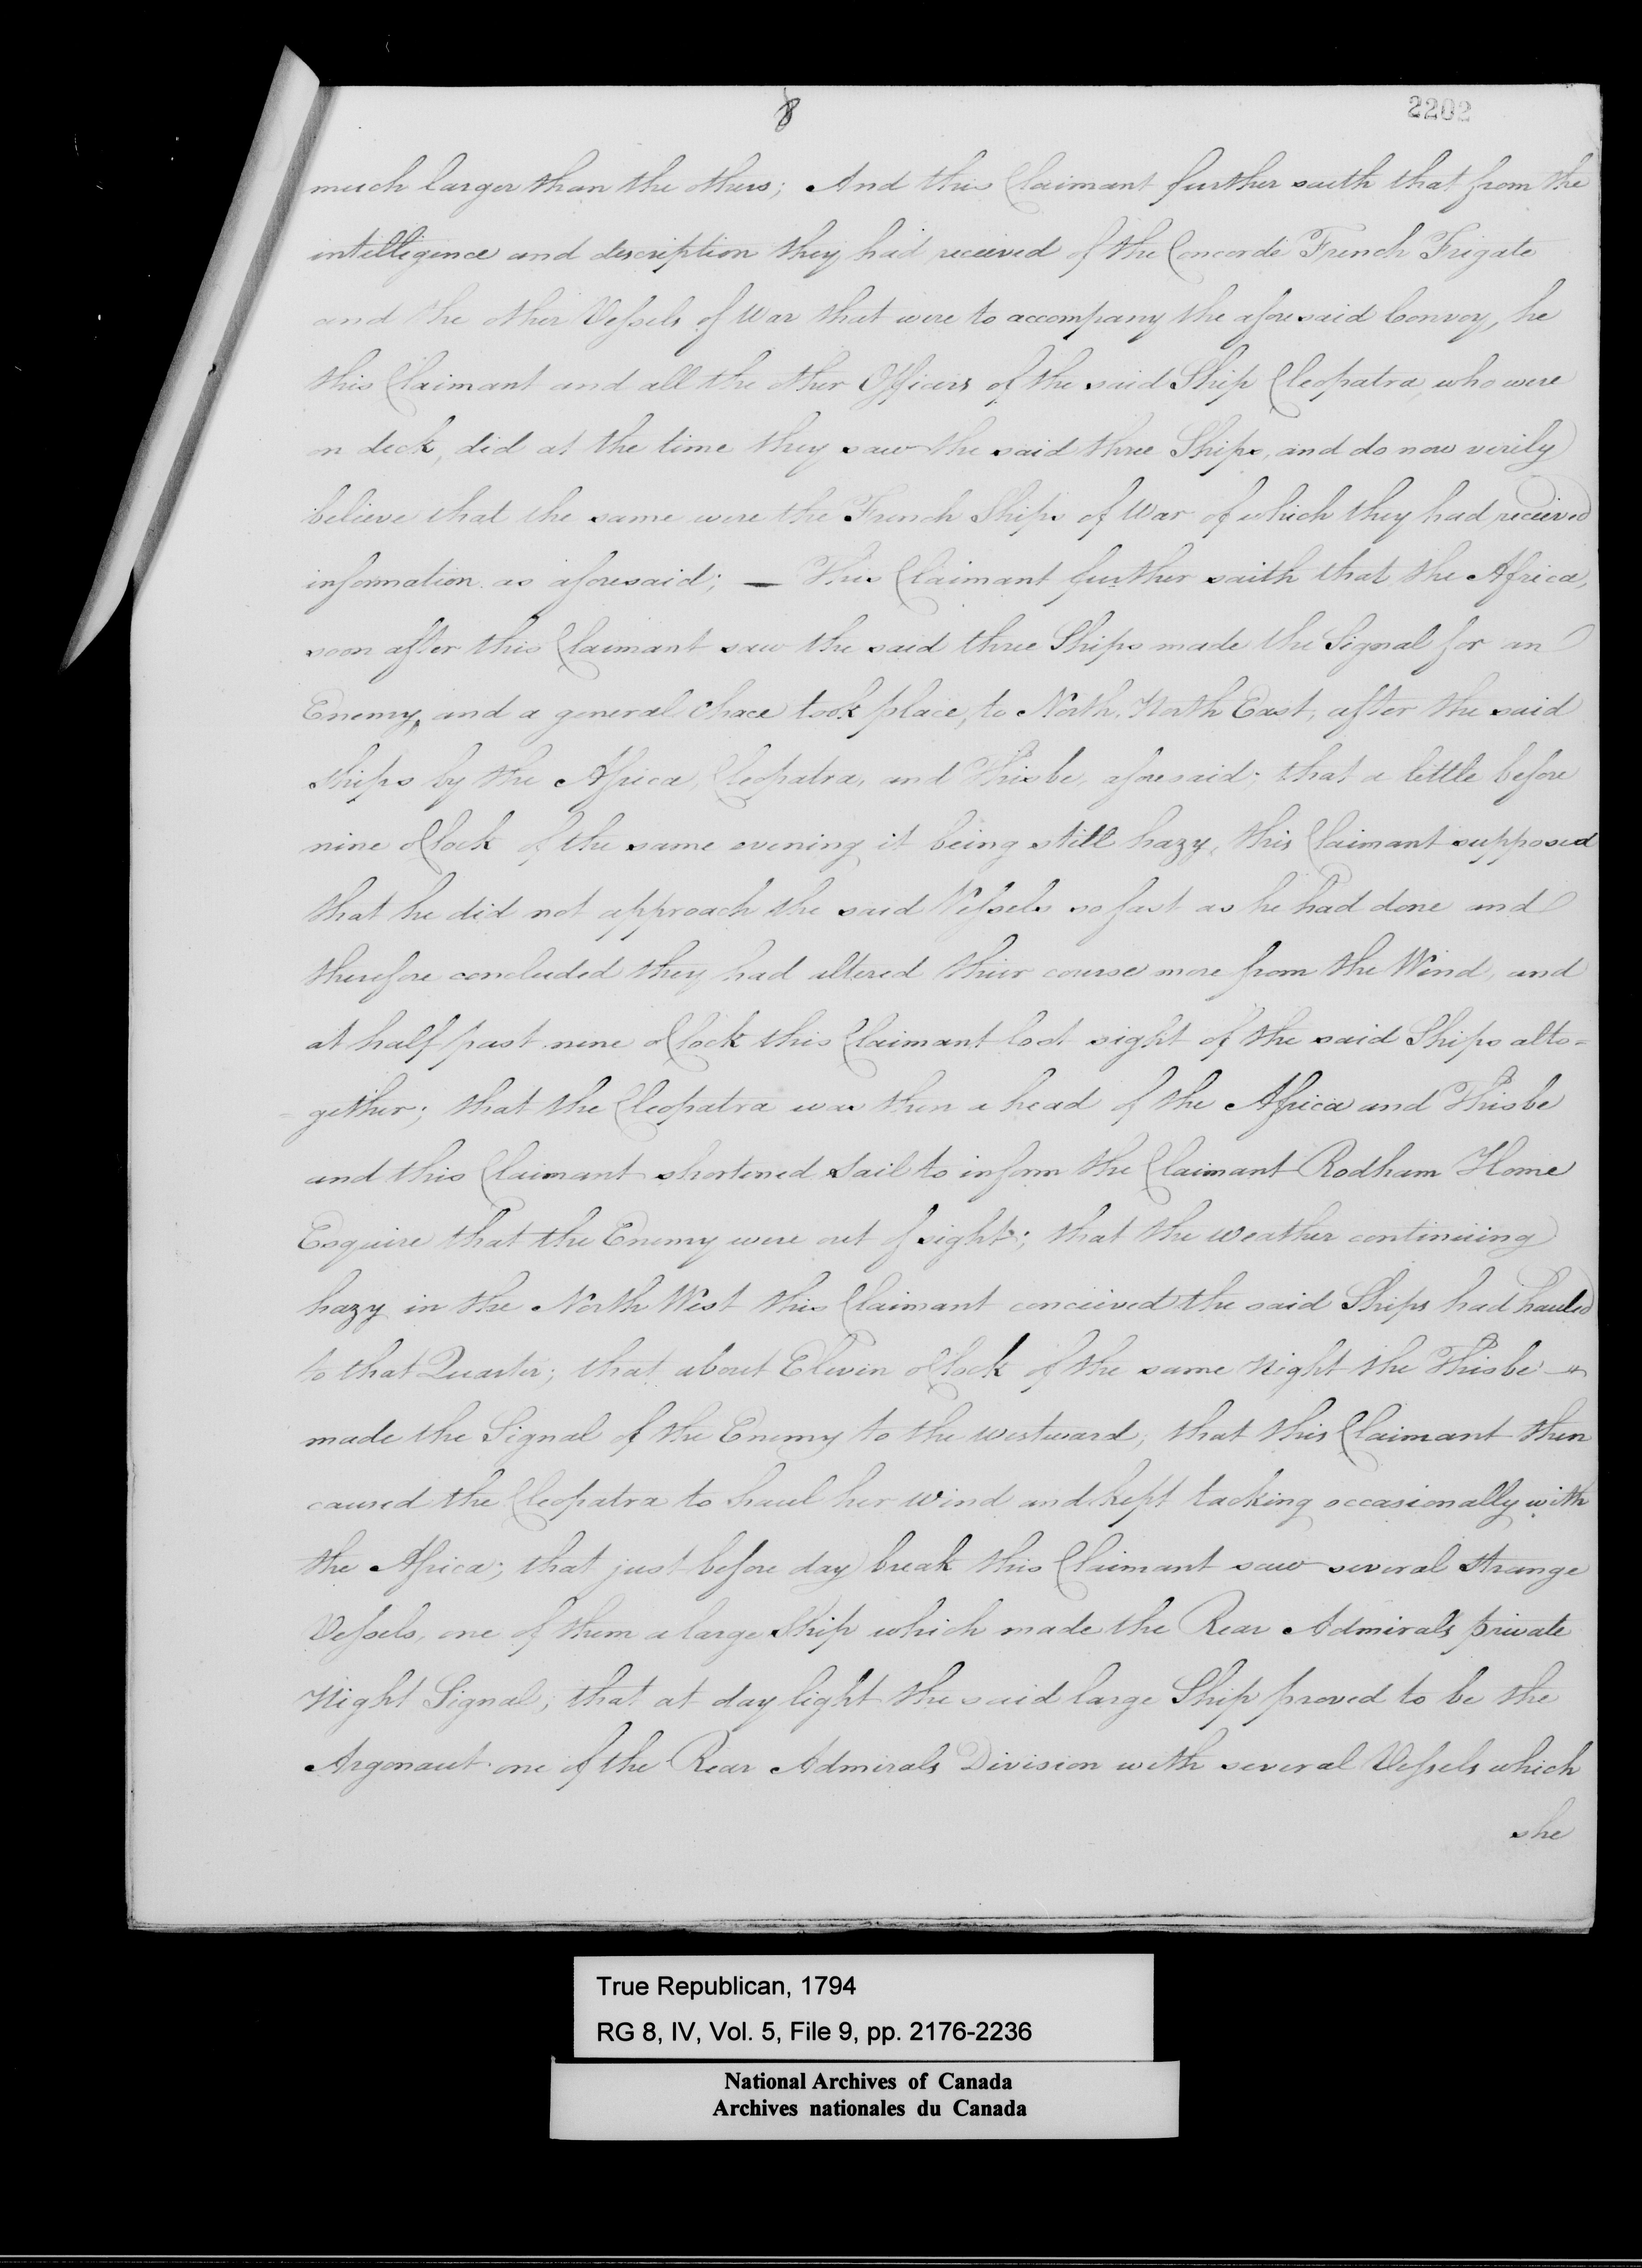 8
2202
much larger than the others; And this Claimant further saith that from the
intelligence and description they had received of the Concorde French Frigate
and the other Vessels of War that were to accompany the aforesaid Convoy, he
this Claimant and all the other Officers of the said Ship Cleopatra, who were
on deck, did at the time they saw the said three Ships, and do now verily
believe that the same were the French Ships of War of which they had received
information as aforesaid; — This Claimant further saith that the Africa,
soon after this Claimant saw the said three Ships made the Signal for an
Enemy, and a general Chace took place, to North, North East, after the said
Ships by the Africa, Cleopatra, and Thisbe, aforesaid; that a little before
nine oClock of the same evening it being still hazy, this Claimant supposed
that he did not approach the said Vessels so fast as he had done and
therefore concluded they had altered their course more from the Wind, and
at half past nine oClock this Claimant lost sight of the said Ships alto=
=gether; that the Cleopatra was then a head of the Africa and Thisbe
and this Claimant shortened Sail to inform the Claimant Rodham Home
Esquire that the Enemy were out of sight; that the weather continuing
hazy in the North West this Claimant conceived the said Ships had hauled
to that Quarter; that about Eleven oClock of the same Night the Thisbe
made the Signal of the Enemy to the westward; that this Claimant then
caused the Cleopatra to haul her Wind and kept tacking occasionally with
the Africa; that just before day break this Claimant saw several strange
Vessels, one of them a large Ship which made the Rear Admirals private
Night Signal; that at day light the said large Ship proved to be the
Argonaut one of the Rear Admirals Division with several Vessels which
she
True Republican, 1794
RG 8, IV, Vol. 5, File 9, pp. 2176-2236
National Archives of Canada
Archives nationales du Canada